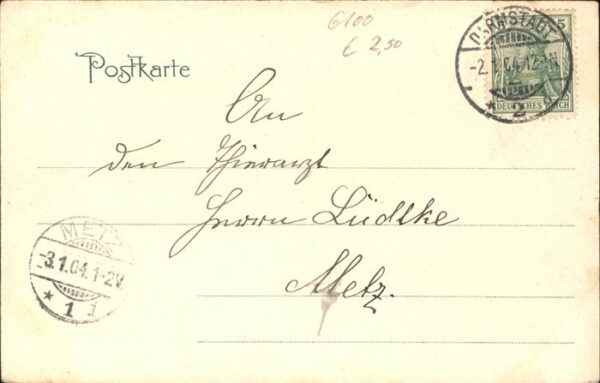 6100
£ 2,50
Postkarte
DARMSTADT
-2.1.04.12-1N
* 2
5
DEUTSCHES REICH
An
den Thierarzt
Herrn Lüdtke
Metz.
METZ
-3.1.04.1-2V.
* 1 1